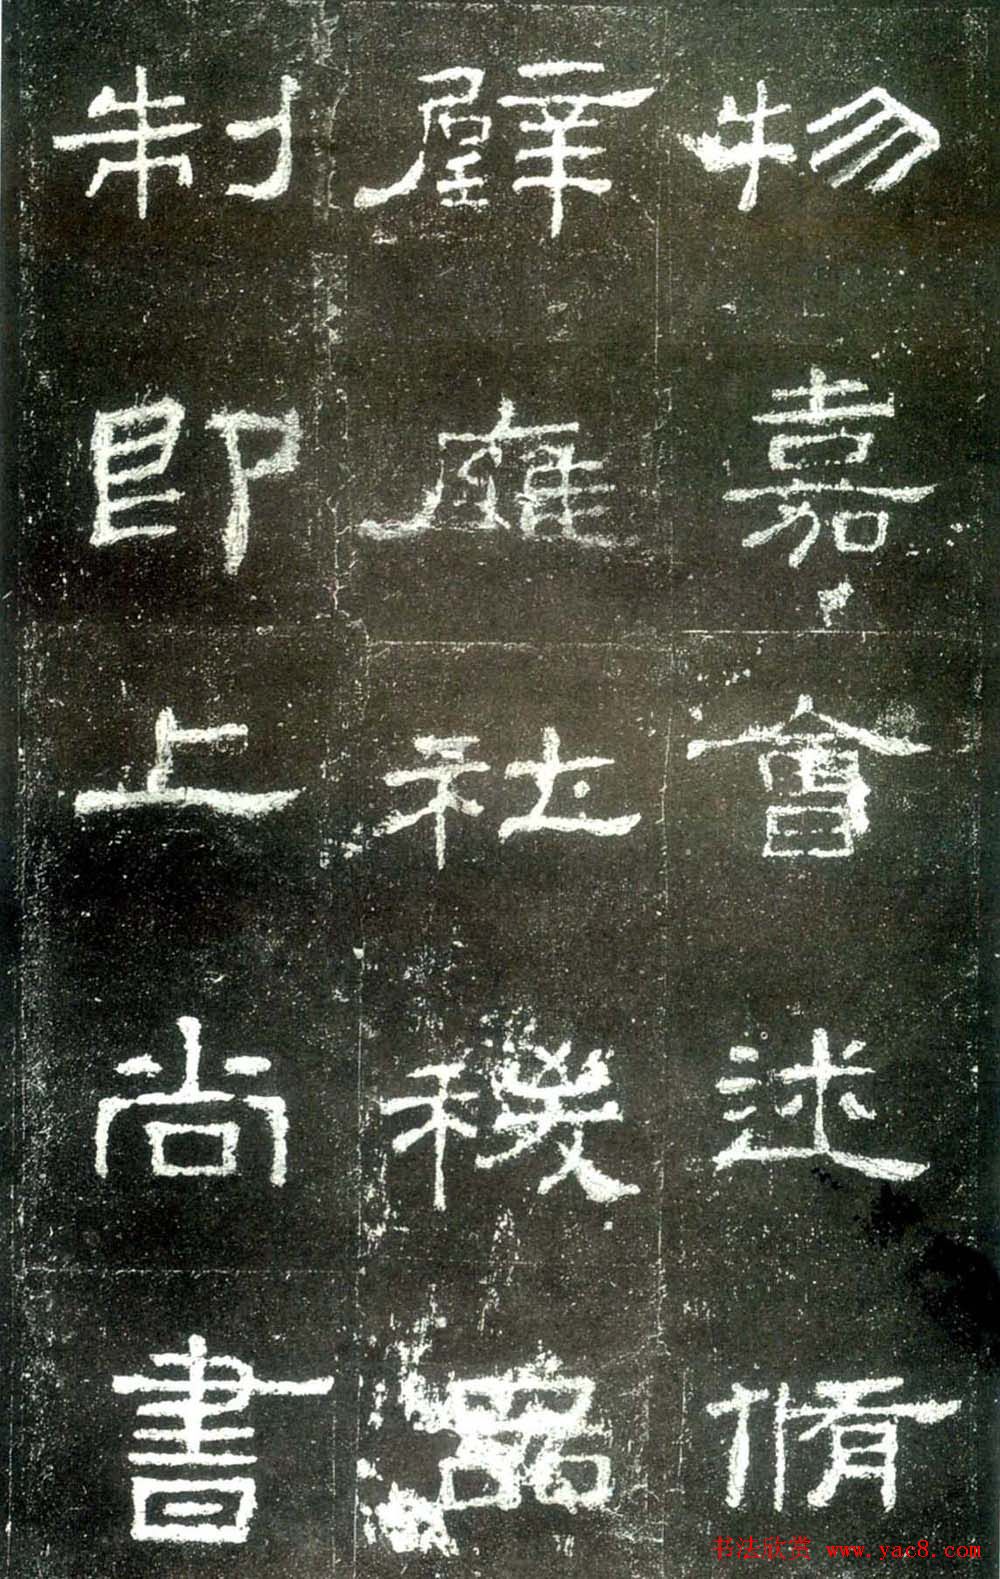 物嘉會述脩
璧雍社稷品
制即上尚書
书法欣赏 www.yac8.com